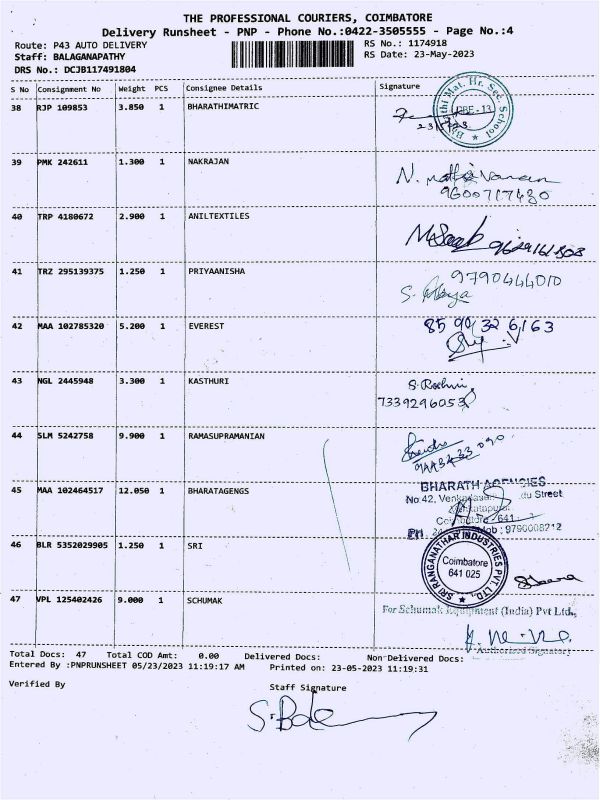 THE PROFESSIONAL COURIERS, COIMBATORE
Delivery Runsheet - PNP - Phone No.:0422-3505555 - Page No.:4
Route: P43 AUTO DELIVERY RS No.: 1174918
Staff: BALAGANAPATHY RS Date: 23-May-2023
DRS No.: DCJB117491804
S No Consignment No Weight PCS Consignee Details Signature
38 RJP 109853 3.850 1 BHARATHIMATRIC
Bharathi Mat. Hr. Sec. School
CBE - 13
39 PMK 242611 1.300 1 NAKRAJAN
9600717430
40 TRP 4180672 2.900 1 ANILTEXTILES
41 TRZ 295139375 1.250 1 PRIYAANISHA
9790444010
42 MAA 102785320 5.200 1 EVEREST
85 90 32 6163
43 NGL 2445948 3.300 1 KASTHURI
7339296053
44 SLM 5242758 9.900 1 RAMASUPRAMANIAN
45 MAA 102464517 12.050 1 BHARATAGENGS
BHARATH AGENCIES
No 42, du Street
641
9790008212
46 BLR 5352029905 1.250 1 SRI
SRI RANGANATHAR INDUSTRIES PVT. LTD.,
Coimbatore
641 025
47 VPL 125402426 9.000 1 SCHUMAK
For Schumak Equipment (India) Pvt Ltd.,
Authorised Signatory
Total Docs: 47 Total COD Amt: 0.00 Delivered Docs: Non-Delivered Docs:
Entered By :PNPRUNSHEET 05/23/2023 11:19:17 AM Printed on: 23-05-2023 11:19:31
Verified By Staff Signature